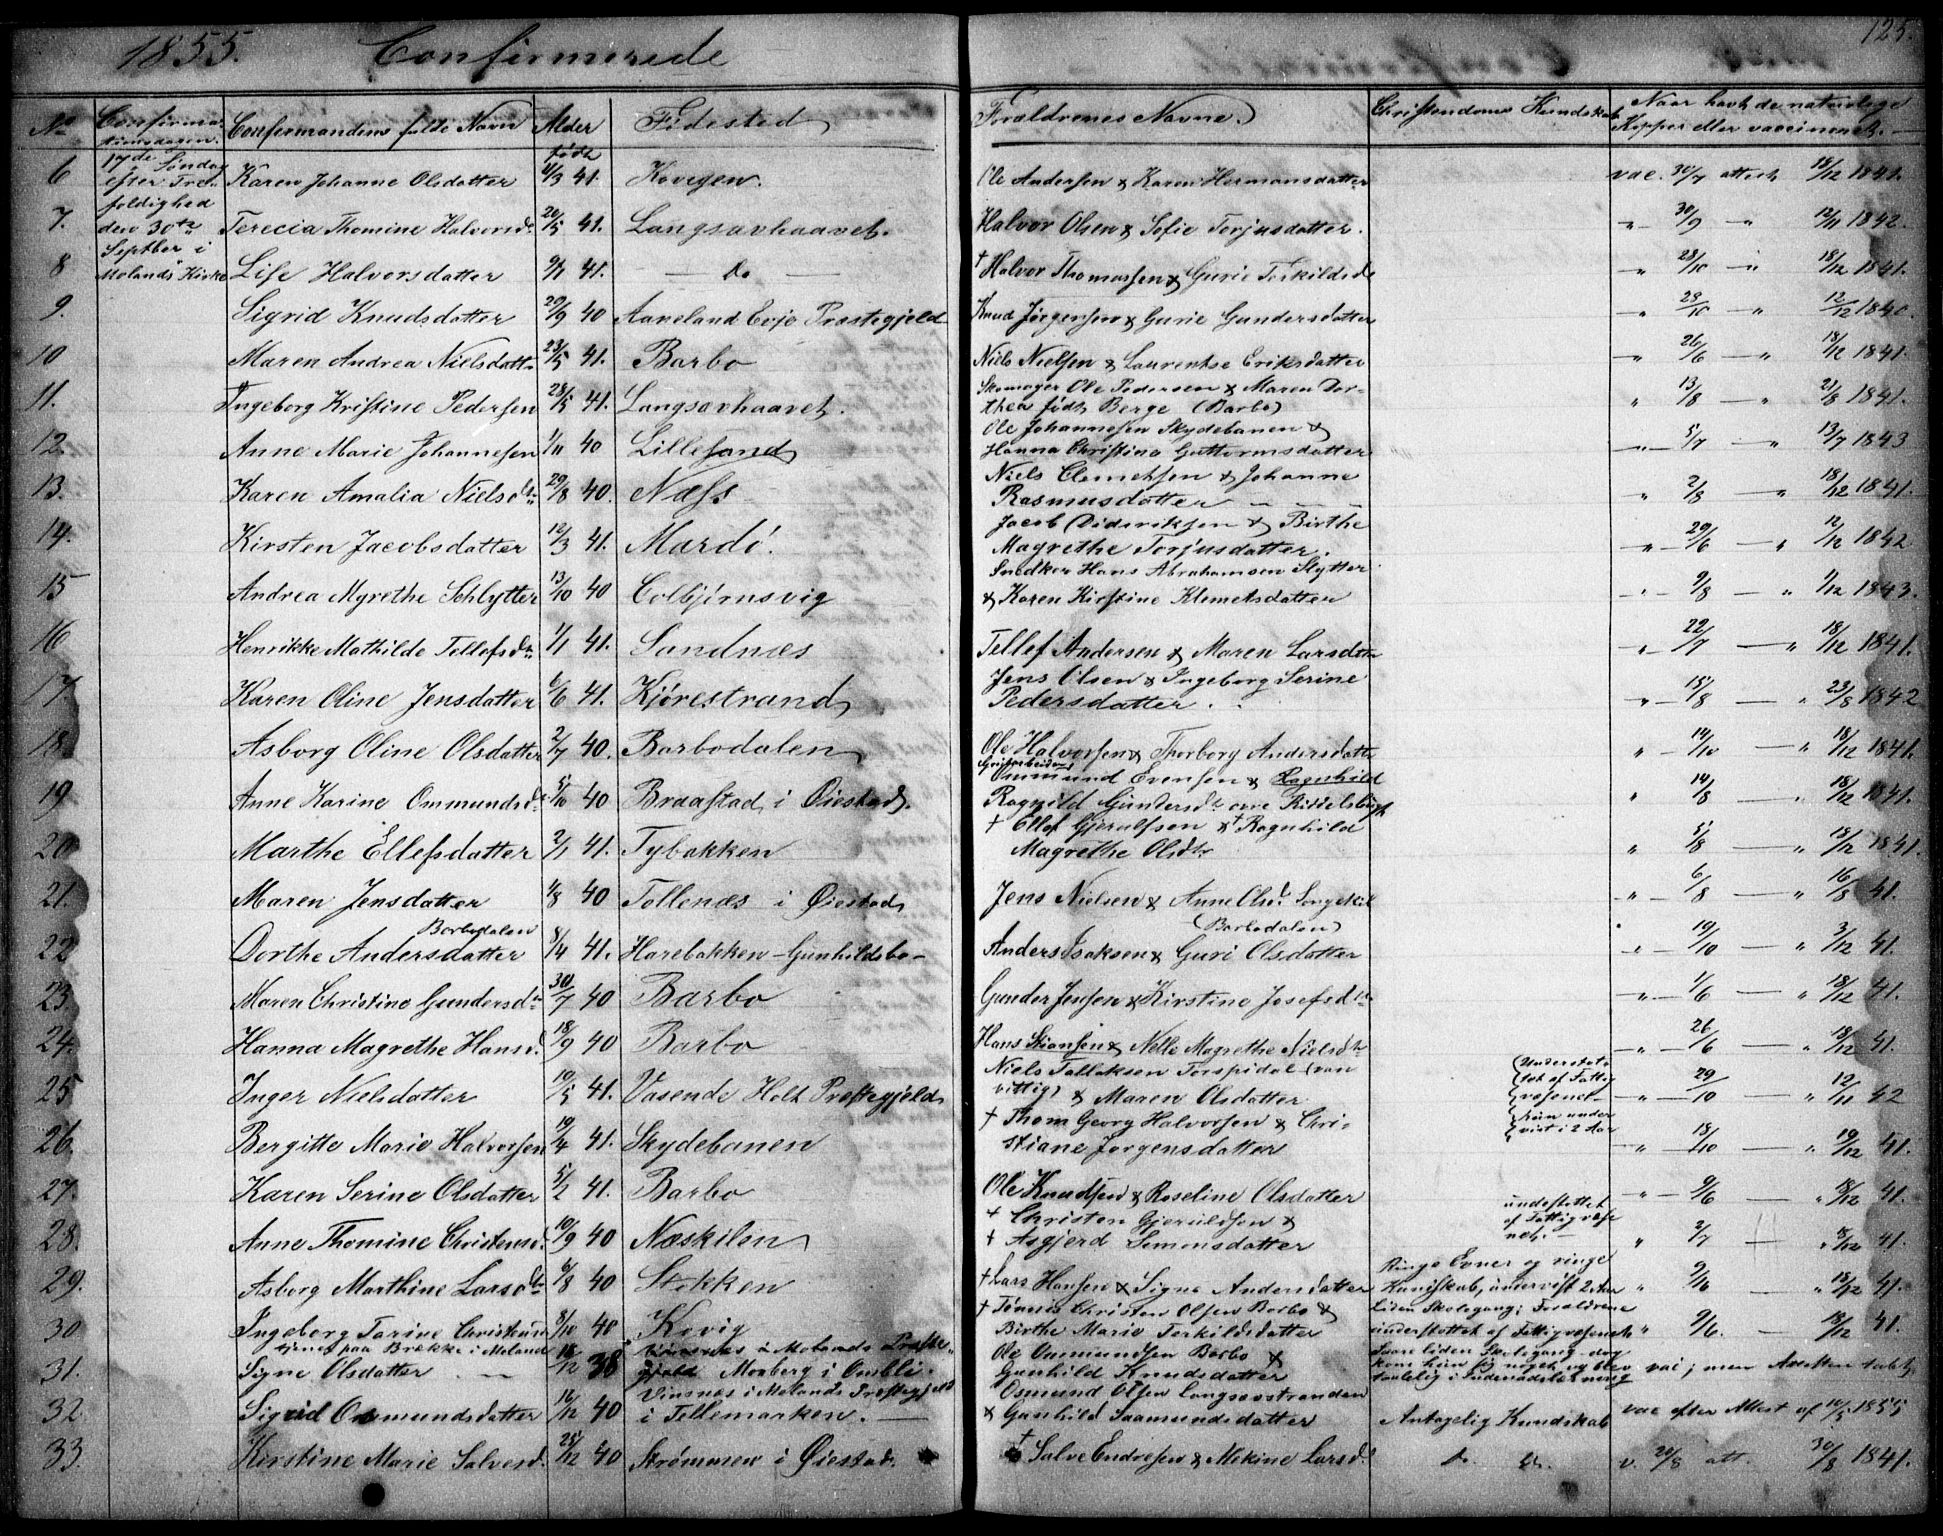 1855. Confirmerede 125.
No Confirmationsdagen. Confirmandens fulde Navn Alder født Fødested Forældrenes Navne. Christendoms Kundskab Naar havt de naturlige Kopper eller vaccineret.
17de Søndag efter Trefoldighed den 30te Septber i Molands Kirke
6 Karen Johanne Olsdatter 4/3 41 Ole Andersen & Karen Hermansdatter vac. 30/7 attest 18/12 1841.
7. Terecia Thomine Halvorsd. 20/5 41. Langsævhaavet. Halvor Olsen & Sofie Torjusdatter. " 30/9 " 12/11 1842.
8 Lise Halvorsdatter 9/1 41. — do — † Halvor Thomassen & Gurie Terkildsd. " 28/10 " 18/12 1841.
9. Sigrid Knudsdatter 29/9 40 Aaneland Evje Præstegjeld Knud Jørgensen & Gurie Gundersdatter " 23/10 " 12/12 1840.
10 Maren Andrea Nielsdatt. 23/5 41. Barbo Niels Nielsen & Laurentse Eriksdatter " 26/6 — " 18/12 1841.
11. Ingeborg Kristine Pedersen 28/5 41. Langsævhaavet. Skomager Ole Pedersen & Maren Dorthea født Berge (Barbo) " 13/8 — " 21/8 1841.
12. Anne Marie Johannesen 1/11 40 Lillesand Ole Johannesen Skydebanen & Hanna Christina Guttormsdatter " 5/7 " 13/7 1843
13. Karen Amalia Nielsdtr 29/8 40. Næss Niels Clemetsen & Johanne Rasmusdatter " 2/8 — " 18/12 1841.
14. Kirsten Jacobsdatter 12/3 41. Mardö. Jacob Dideriksen & Birthe Magrethe Torjusdatter. " — 29/6 — " 12/12 1842
15 Andrea Myrethe Schlytter 13/10 40 Colbjørnsvig Snedker Hans Abrahamsen Slytter & Karen Kirstine Klemetsdatter " 9/8 — " 9/12 1843.
16 Henrikke Mathilde Tellefsdtr 1/1 41. Sandnæs Tellef Andersen & Maren Larsdatr " 22/7 — " 18/12 1841.
17. Karen Oline Jensdatter 6/6 41. Kjørestrand Jens Olsen & Ingeborg Serine Pedersdatter. " 15/8 — " 23/8 1842
18. Asborg Oline Olsdatter 2/7 40. Barbodalen Ole Halvorsen & Thorborg Andersdatt. " 14/10 — " 18/12 1841.
19 Anne Karine Ommundsd. 5/10 40 Braastad i Øiestad. Ommund Evensen & Ragnhild Ragnild Gundersdtr " 14/8 — " 18/12 1841.
20 Marthe Ellefsdatter 2/1 41. Tybakken † Ellef Gjerulfsen & † Ragnhild Magrethe Olsdtr " 5/8 — " 18/12 1841.
21. Maren Jensdatter 4/8 40 Tellenæs i Øiestad Jens Nielsen & Anne Olsd. Songekil " 6/8 — " 16/8 41.
22 Dorthe Andersdatter Barbodalen 8/4 41. Harebakken – Gunhildsbo – Anders Isaksen & Guri Olsdatter (Barbodalen) " 19/10 — " 3/12 41.
23. Maren Christine Gundersdtr 30/7 40 Barbo Gunder Jensen & Kirstine Josefsdtr " — 1/6 — " 18/12 41.
24. Hanna Magrethe Hansd. 18/9 40 Barbo Hans Skiansen & Nelle Magrethe Nielsdtr " — 26/6 — " 18/12 41.
25 Inger Nielsdatter 19/5 41. Vasende Holt Præstegjeld Niels Tallaksen Torspidal (vanvittig) & Maren Olsdatter (Understøttet af Fattigvæsenet – kun undervist i 2 Aar " — 29/10 — " 12/11 42
26. Bergitte Marie Halvorsen 19/4 41. Skydebanen † Thom Georg Halvorsen & Christiane Jørgensdatter " — 18/10 — " 19/12 41.
27. Karen Serine Olsdatter 5/2 41. Barbo Ole Knudsen & Roseline Olsdatter " — 9/6 — " 18/12 41.
28. Anne Thomine Christensd. 10/9 40 Næskilen † Christen Gjerulfsen & † Asgjerd Simonsdatter undestøttet af Fattigvæsenet. — " 2/7 " 18/12 41.
29. Asborg Marthine Larsdtr 6/8 40 Stokken † Lars Hansen & Signe Andersdatter Ringe Evner og ringe Kundskab, undervist 2 Aar " 9/10 " 18/12 41.
30 Ingeborg Tarine 8/10 40 Kovig † Christen Olsen Barbo & Birthe Marie Terkildsdatter Liden Skolegang; Forældrene understøttet af Fattigvæsenet " 9/6. — 18/12 41.
31. tjener paa Brække i Moland Signe Olsdatter 16/12 38 Moberg i Omlid. Ole Ommundsen Barbo & Gunhild Knudsdatter liden Skolegang dog kom hun sig noget og blev taalelig i Indenadslæsning vac; men Attesten tabt,
32 Sigrid Osmundsdatter 16/12 40 Vinsnes i Molands Præstegjeld i Tellemarken. — Osmund Olsen Langsævstranden & Gunhild Saamundsdatter Antagelig Kundskab vac efter Attest af 10/5 1855
33. Kirstine Marie Salvesd. 25/12 40 Strømmen i Øiestad. † Salve Endresen & Mekine Larsd. do. do. v. 20/8 att. 30/8 1841.